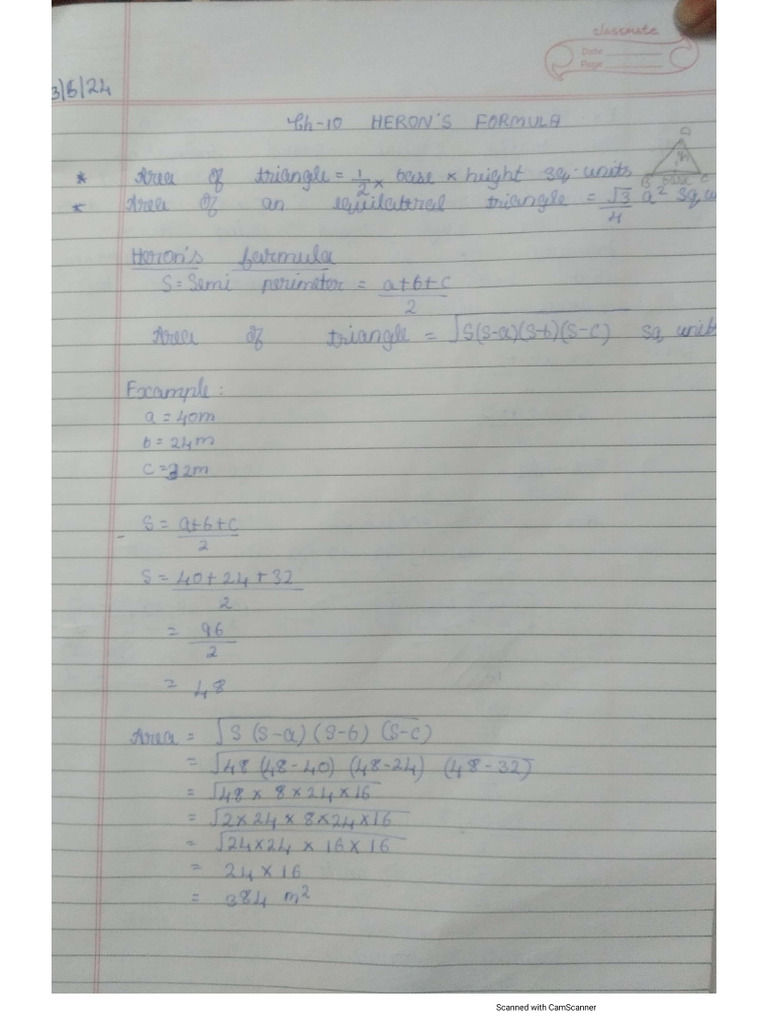 classmate
Date
Page
3/5/24
Ch-10 HERON'S FORMULA
* Area of triangle = 1/2 × base × height sq. units
* Area of an equilateral triangle = √3/4 a² sq. u
Heron's formula
S = Semi perimeter = a+b+c/2
Area of triangle = √S(S-a)(S-b)(S-c) sq. units
Example:
a = 40m
b = 24m
c = 32m
S = a+b+c/2
S = 40+24+32/2
= 96/2
= 48
Area = √S (S-a) (S-b) (S-c)
= √48 (48-40) (48-24) (48-32)
= √48 × 8 × 24 × 16
= √2×24 × 8×24×16
= √24×24 × 16×16
= 24×16
= 384 m²
Scanned with CamScanner